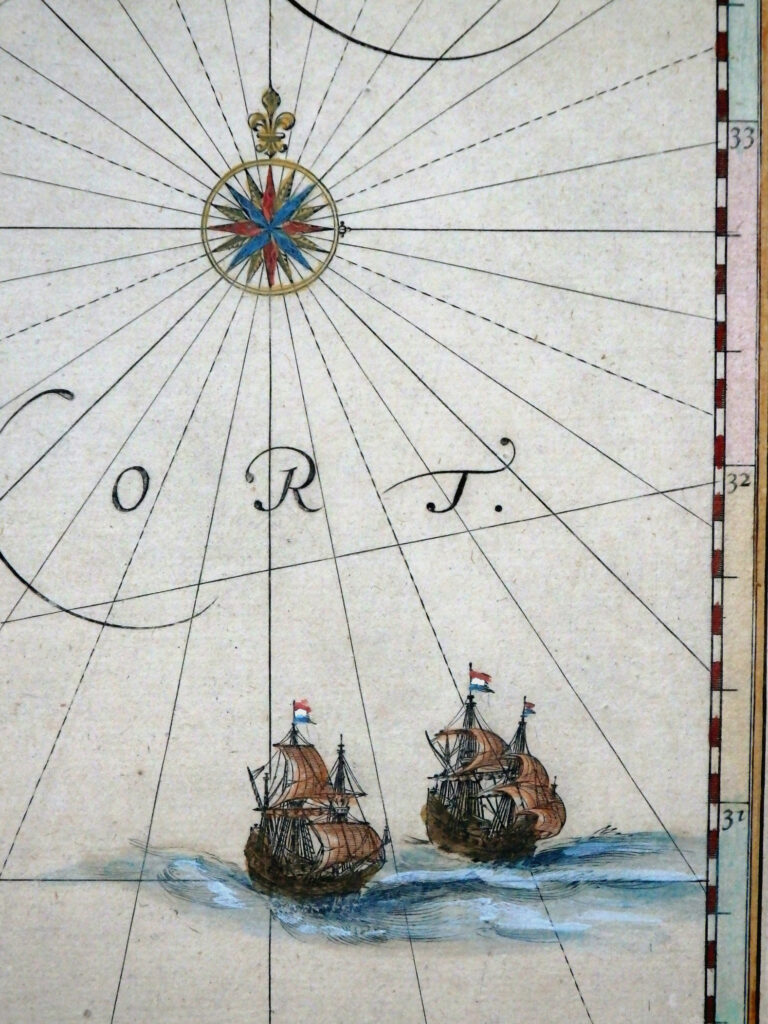 33
ORT.
32
31